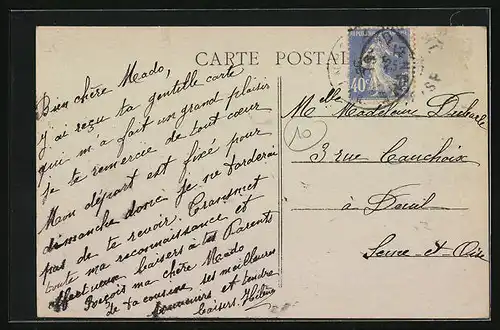 CARTE POSTALE
40c
Bien chère Mado,
J'ai reçu ta gentille carte
qui m'a fait un grand plaisir
Je te remercie de tout cœur
Mon départ est fixé pour
dimanche donc je ne tarderai
pas de te revoir. Transmet
toute ma reconnaissance et
affectueux baisers à tes Parents
Reçois ma chère Mado
de ta cousine, ses meilleurs
souvenirs et tendres
baisers. Hélène
Melle Madeleine
3 rue Cauchoix
à Deuil
Seine-et-Oise
10